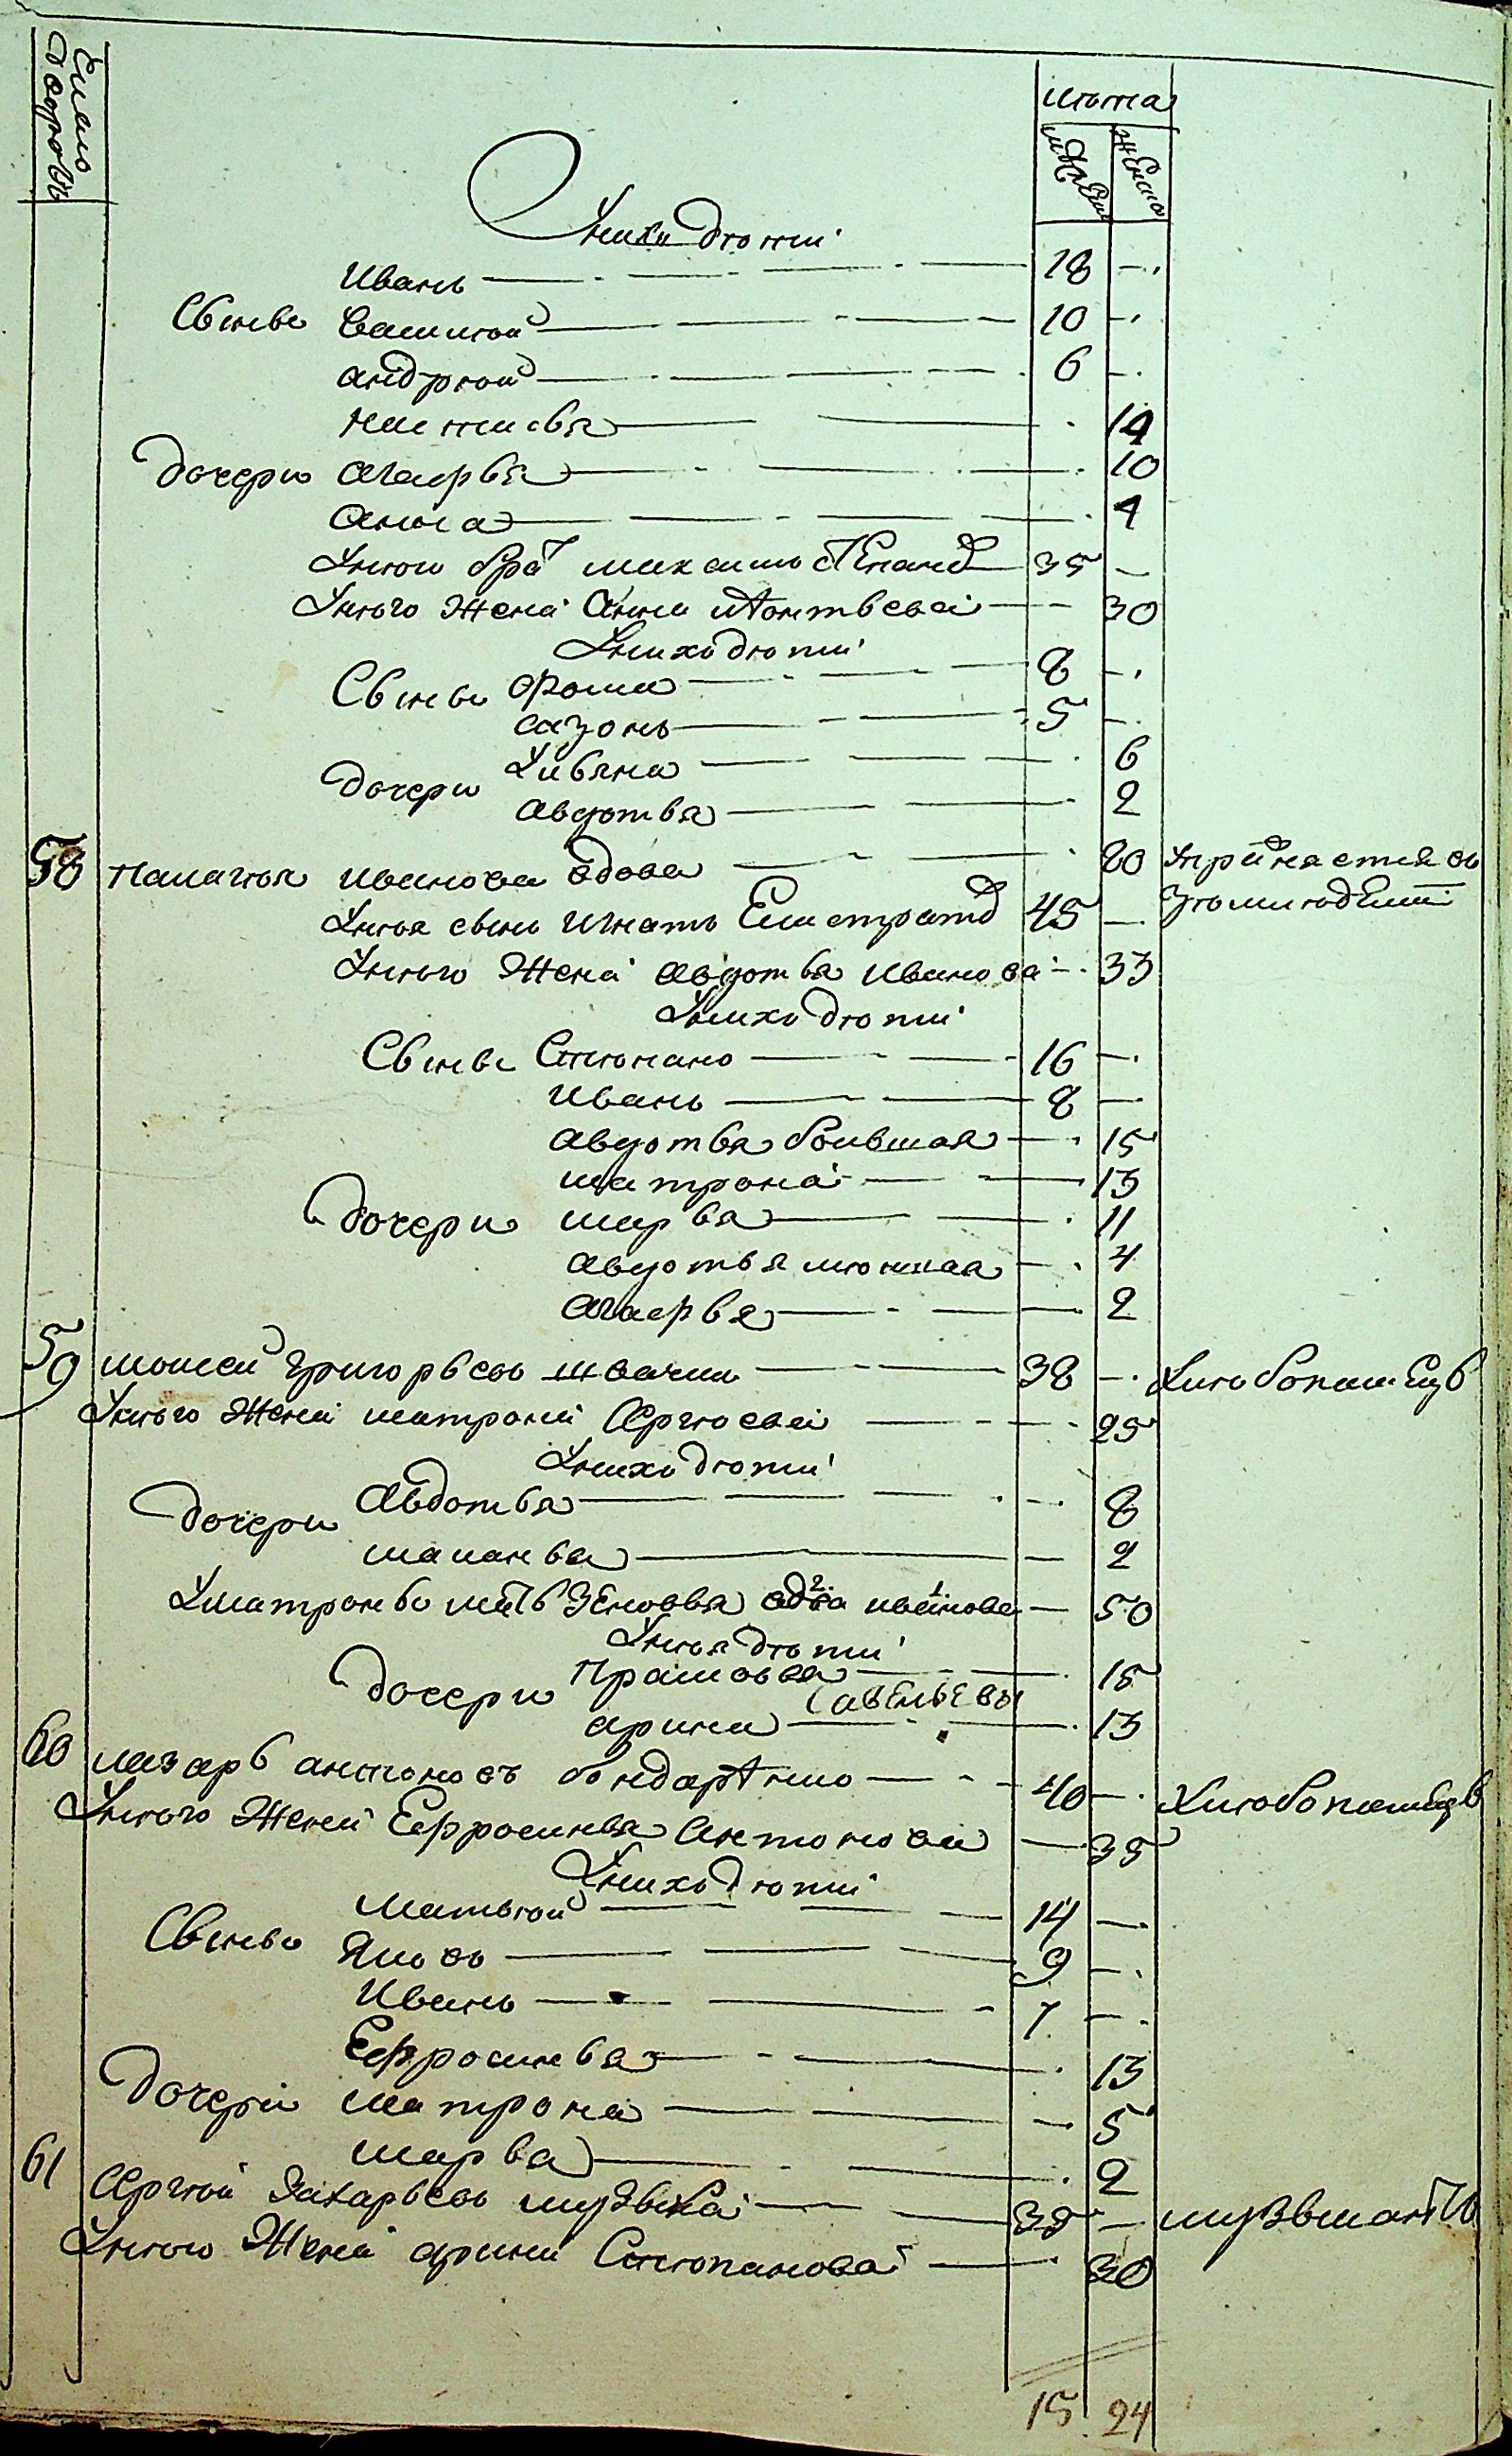 Число дворовъ
лѣта
мужеска
женска
У нихъ дѣти
Иванъ 18 —
Сыновья Василей 10 —
андрѣй 6 —
настасья 14
дочери агафья 10
анна 4
У него братъ михаила степанов 35 —
У него жена анна матвѣева 30
У нихъ дѣти
Сыновья фома 8 —
сазонъ 5 —
дочери Ульяна 6
авдотья 2
58 палагѣя иванова вдова 80
У нея сынъ игнатъ Елистратов 45 —
У него жена авдотья иванова 33
У нихъ дѣти
Сыновья Степанъ 16 —
иванъ 8 —
авдотья большая 15
матрона 13
дочери марья 11
авдотья меншая 4
агафья 2
59 моисей григорьевъ швачка 38 — хлѣбопашецъ
У него жена матрона Сергѣева 25
У нихъ дѣти
дочери авдотья 8
маланья 2
У матроны мать Зеновья вдова иванова 50
У нея дѣти
дочери прасковья 15
савельевы
арина 13
60 лазарь антоновъ бондаренко 40 — хлѣбопашецъ
У него жена Ефросинья антонова 35
У нихъ дѣти
матвѣй 14 —
Сыновья Яковъ 9 —
иванъ 7 —
Ефросинья 13
дочери матрона 5
марья 2
61 Сергѣй Захарьевъ 35 — музыкантъ
У него жена арина Степанова 30
15 24